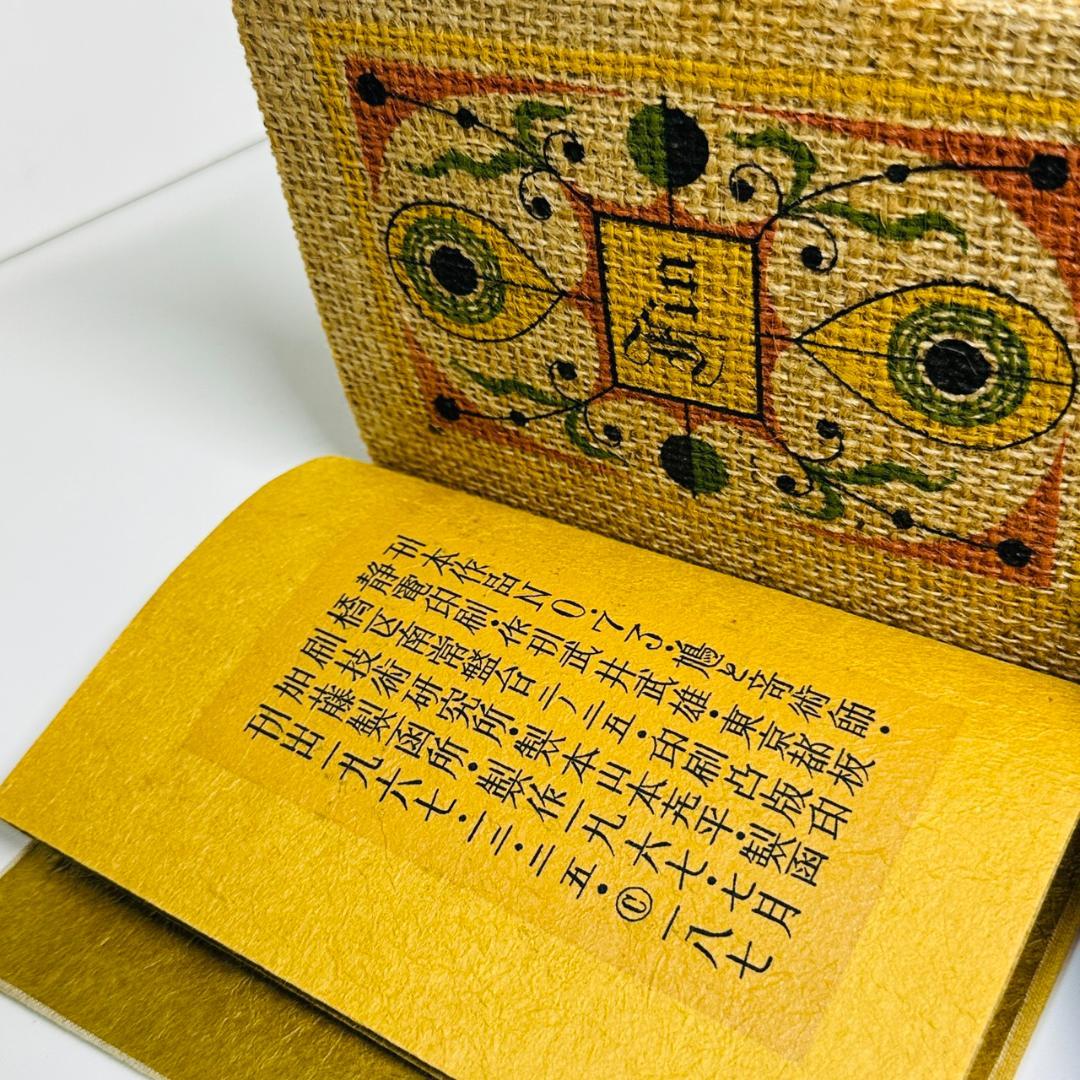 刊本作品NO.73・鳩と奇術師・
静電印刷・作刊武井武雄・東京都板
橋区南常盤台二ノ二五・印刷凸版印
刷技術研究所・製本山本芳平・製函
加藤製函所・製作一九六七・七月
刊出一九六七・一二・二五・©一八七
Fin